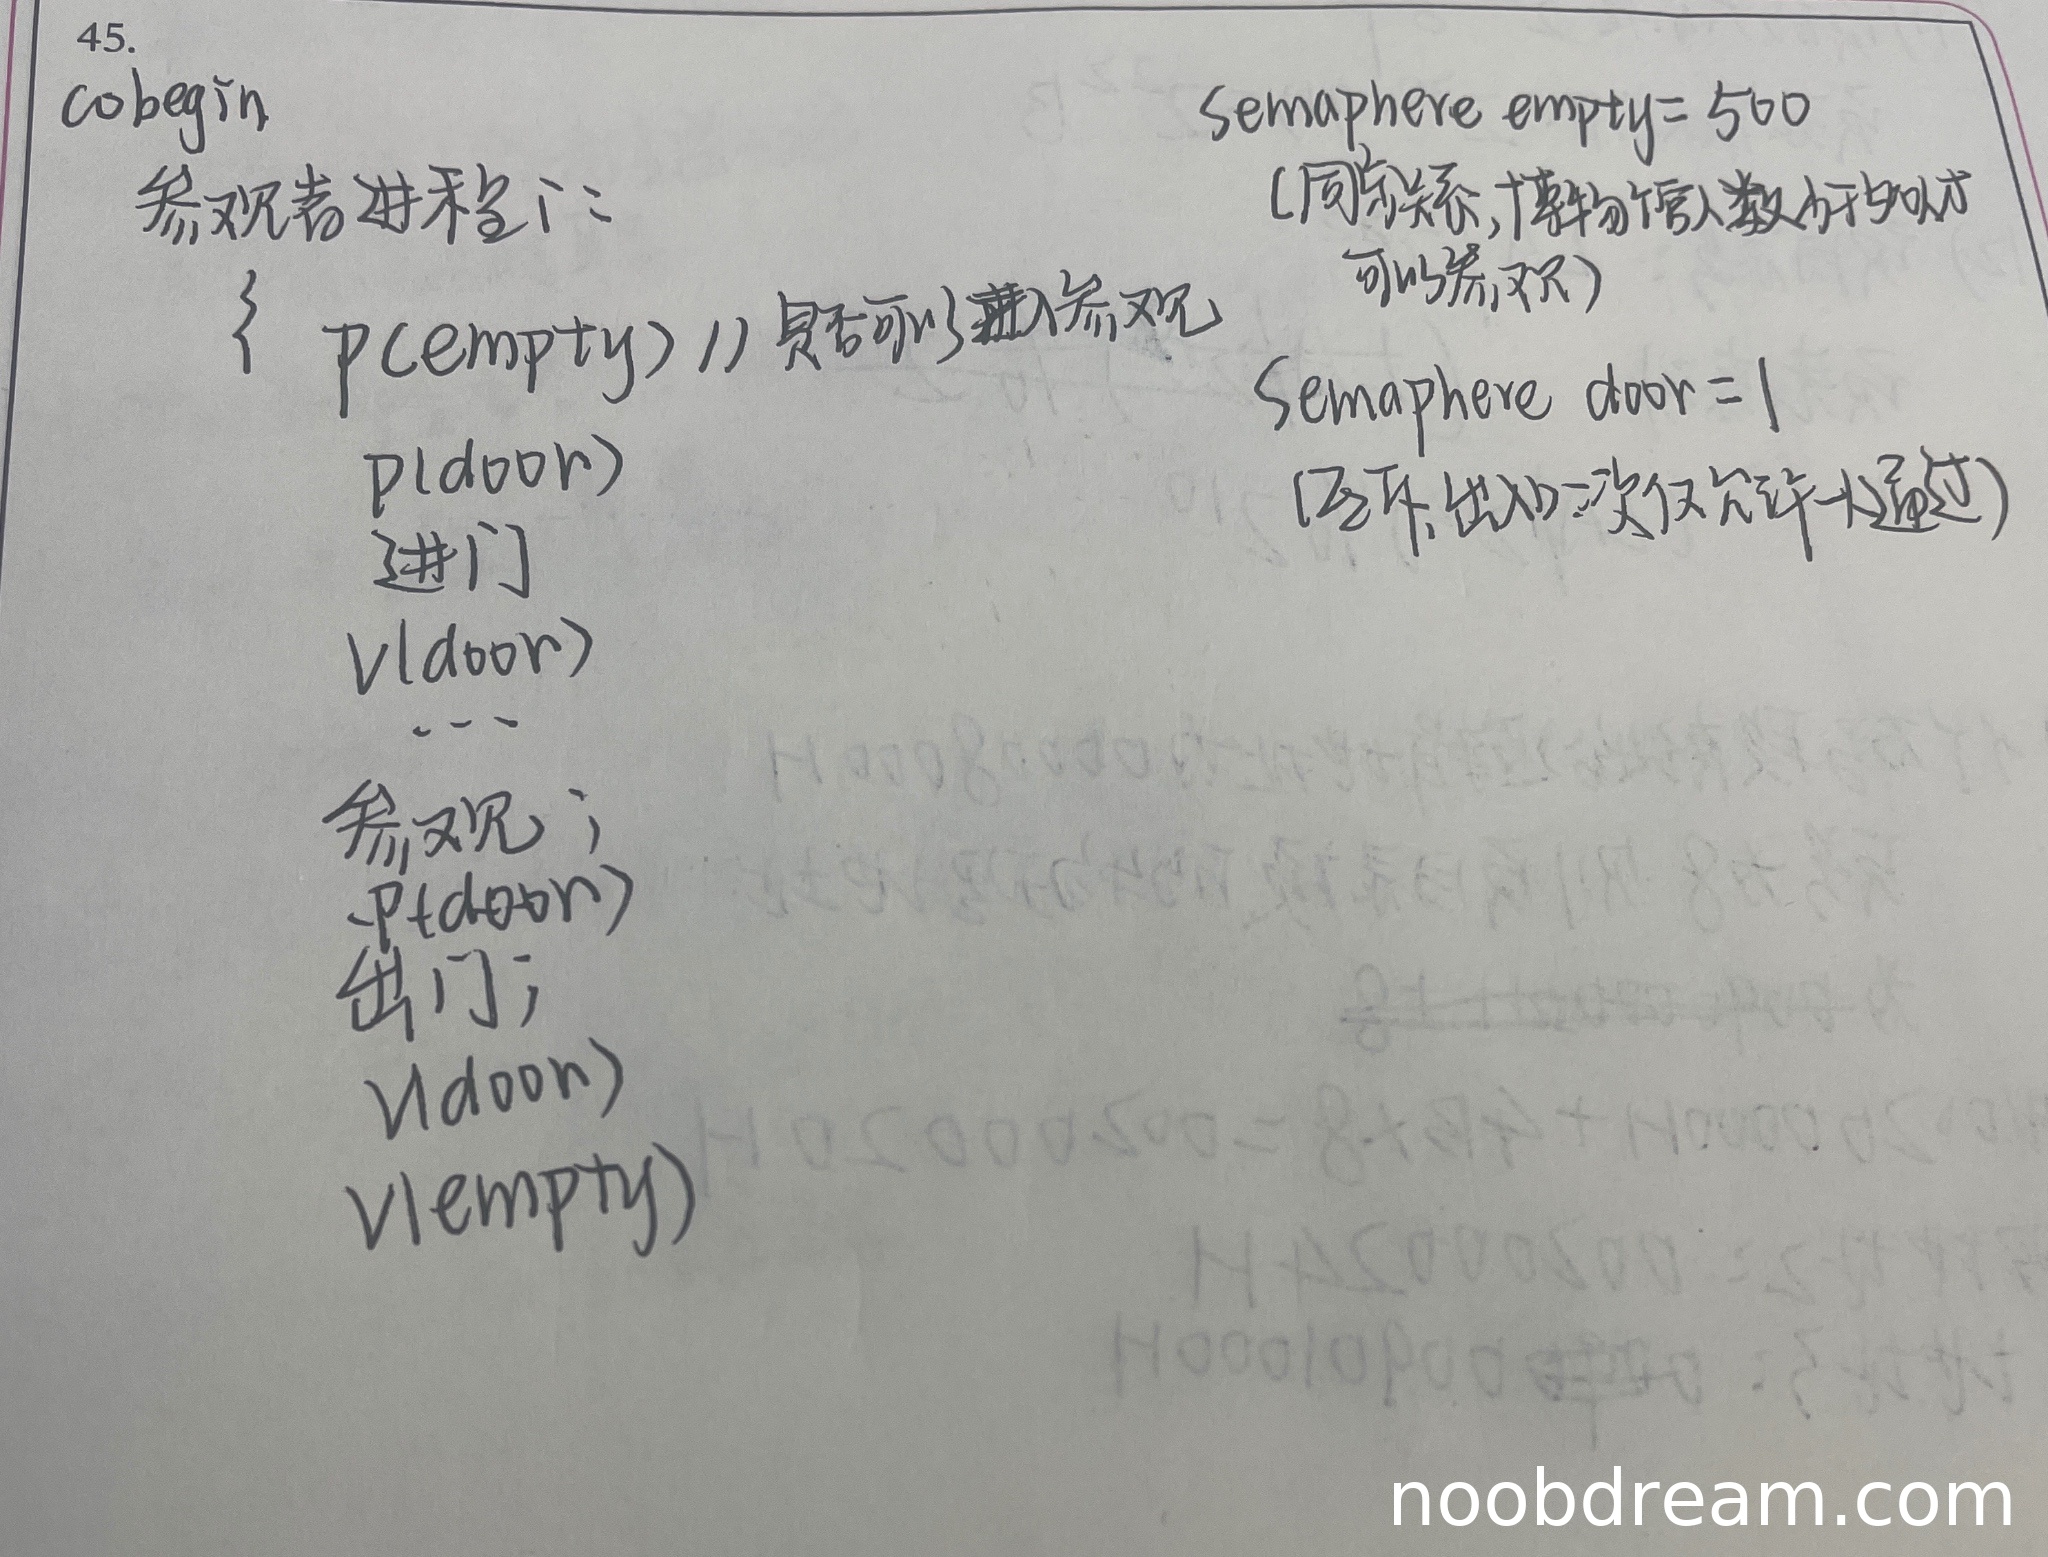 45.
cobegin
参观者进程i:
{ p(empty) // 是否可以进入参观
p(door)
进门
v(door)
...
参观;
p(door)
出门;
v(door)
v(empty)
semaphere empty=500
(同步关系,博物馆人数小于500时才
可以参观)
semaphere door=1
(互斥,出入口一次仅允许一人通过)
noobdream.com